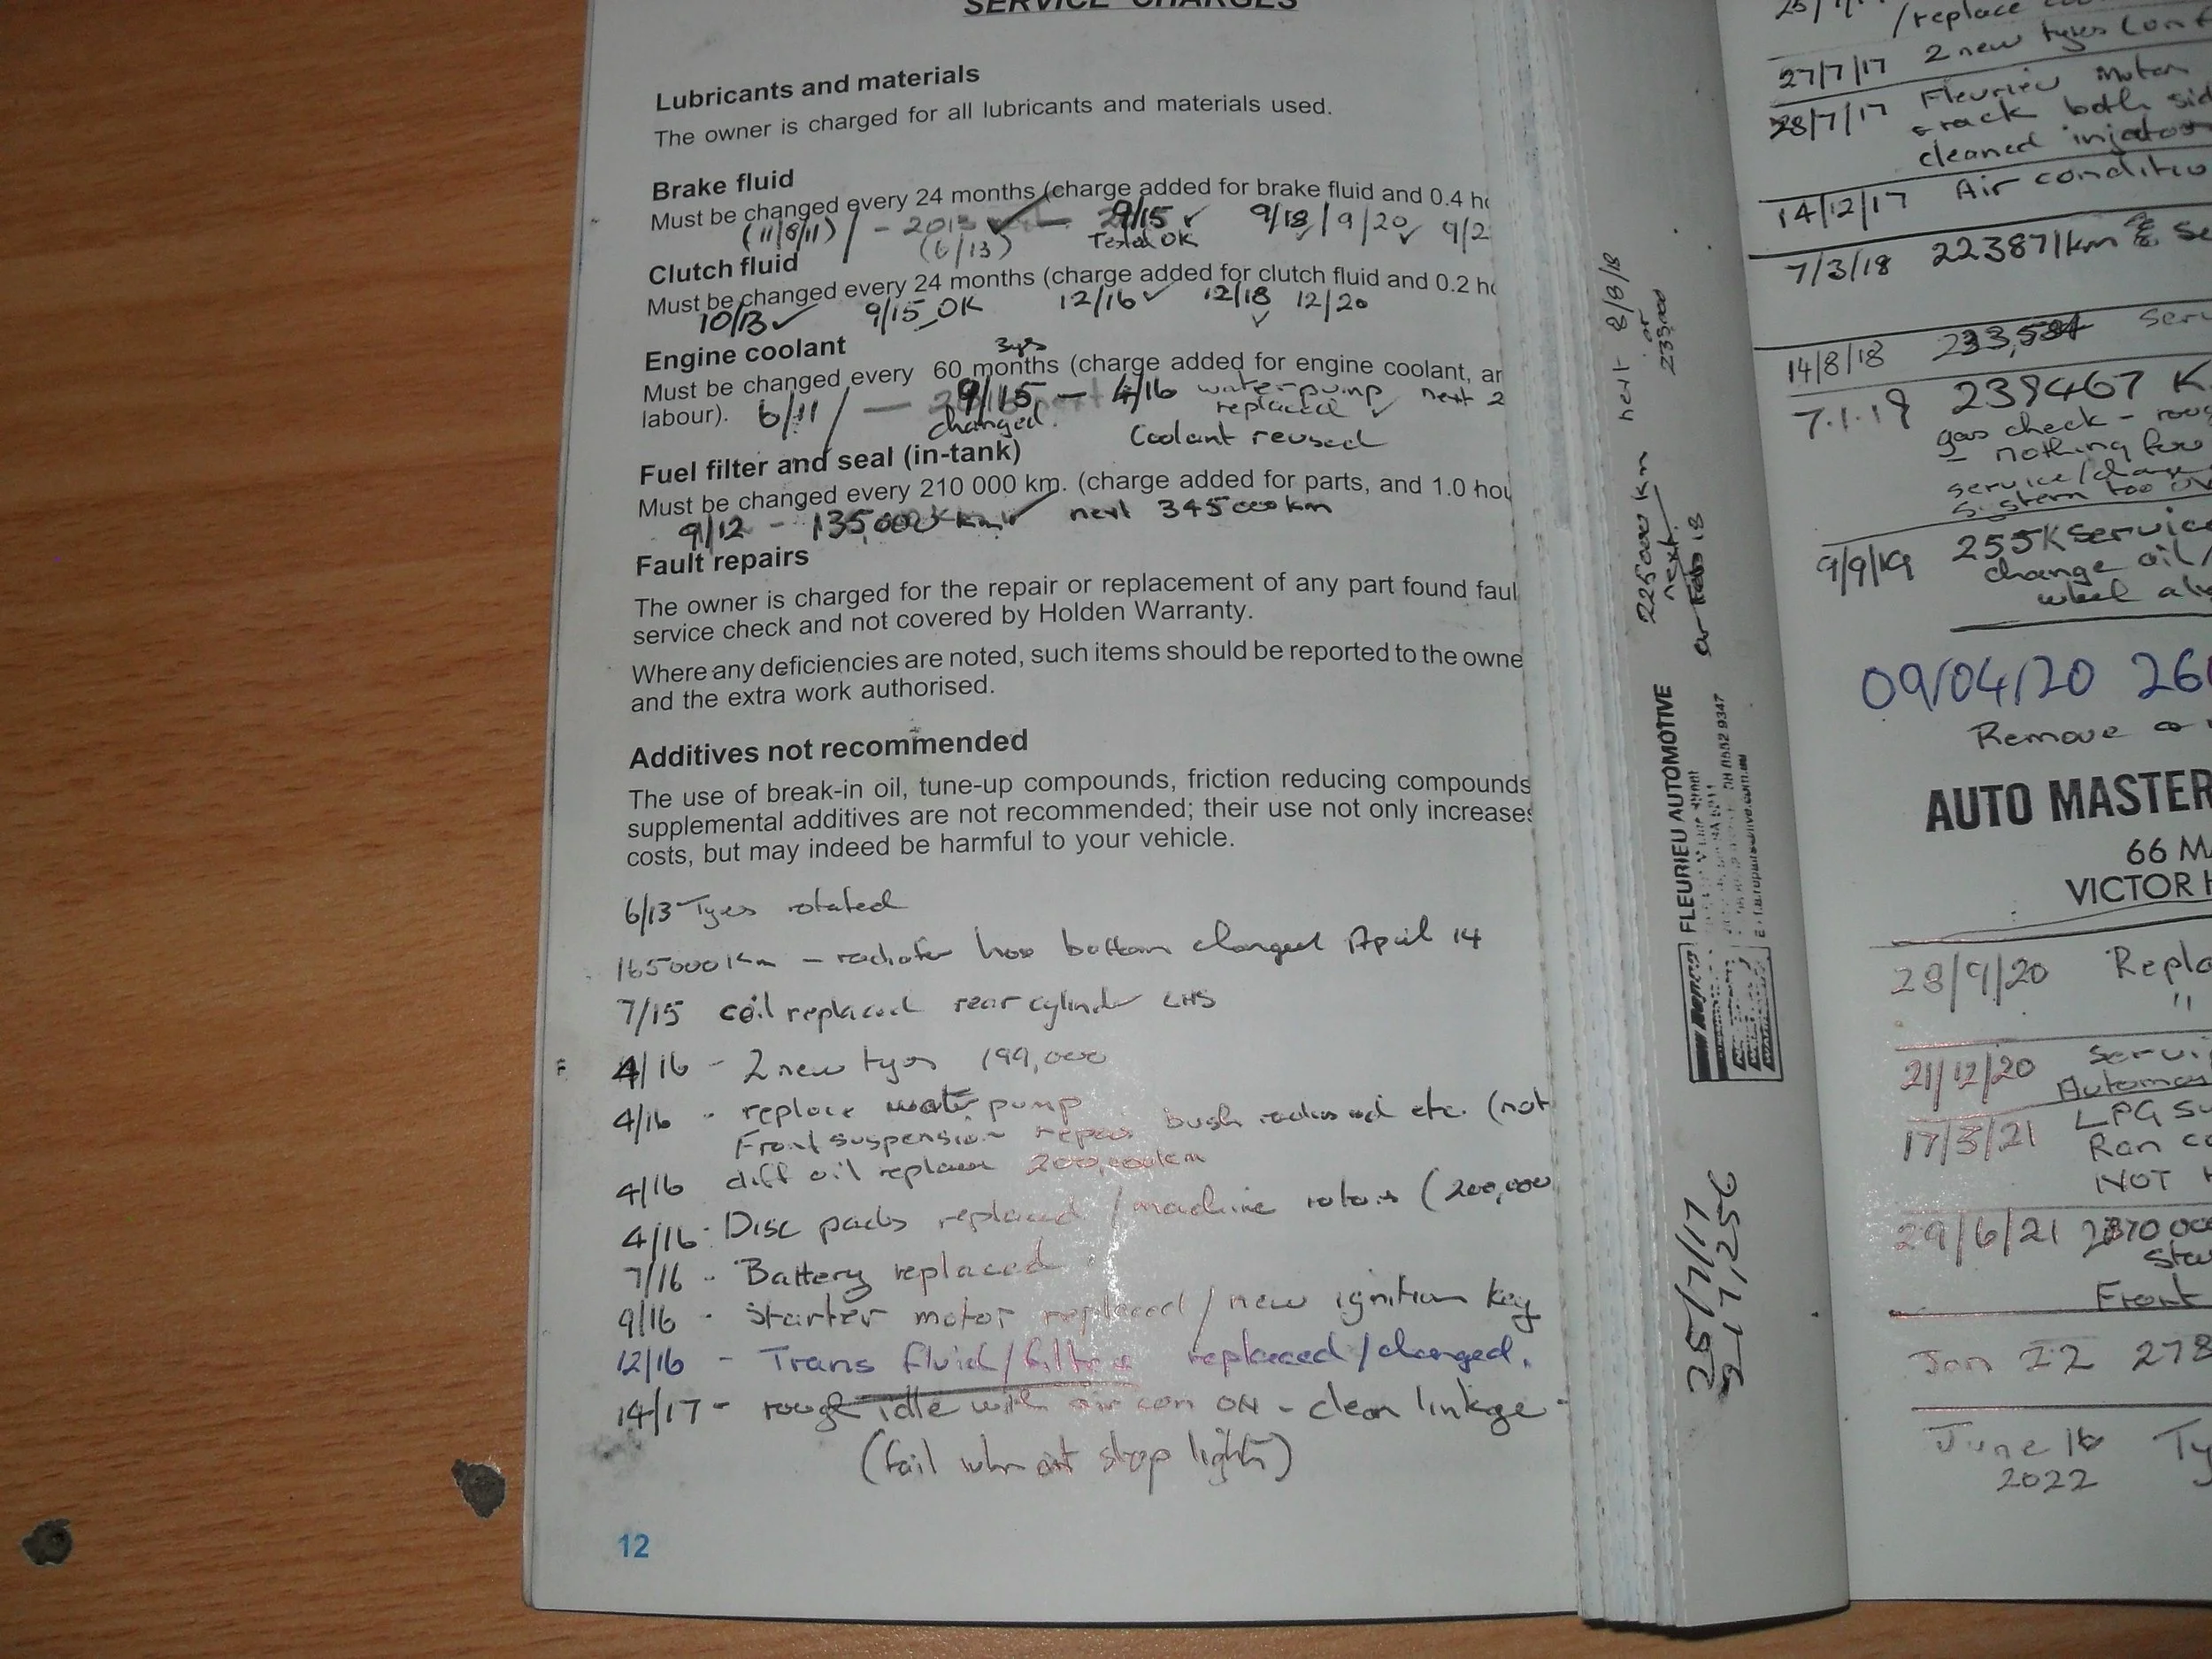 SERVICE CHARGES
Lubricants and materials
The owner is charged for all lubricants and materials used.
Brake fluid
Must be changed every 24 months (charge added for brake fluid and 0.4
(11/8/11) - 2013 9/15 ✓ 9/18 / 9/20 9/2
(6/13) Tested OK
Clutch fluid
Must be changed every 24 months (charge added for clutch fluid and 0.2
10/13 ✓ 9/15 OK 12/16 ✓ 12/18 12/20
Engine coolant
3yrs
Must be changed every 60 months (charge added for engine coolant,
labour). 6/11 — 9/15 — 4/16 water pump next 2
changed. replaced ✓
Coolant reused
Fuel filter and seal (in-tank)
Must be changed every 210 000 km. (charge added for parts, and 1.0
9/12 - 135,000 km ✓ next 345000km
Fault repairs
The owner is charged for the repair or replacement of any part found
service check and not covered by Holden Warranty.
Where any deficiencies are noted, such items should be reported to the
and the extra work authorised.
Additives not recommended
The use of break-in oil, tune-up compounds, friction reducing compounds
supplemental additives are not recommended; their use not only increases
costs, but may indeed be harmful to your vehicle.
6/13 Tyes rotated
165000 Km - radiator hose bottom changed April 14
7/15 coil replaced rear cylinder LHS
4/16 - 2 new tyes 199,000
4/16 - replace water pump
Front suspension repair bush etc. (not
4/16 diff oil replace 200,000km
4/16 - Disc pads replaced / machine rotors (200,000
7/16 - Battery replaced
9/16 - Starter motor replaced / new ignition key
12/16 - Trans fluid / filter replaced / changed.
14/17 - rough idle with air con ON - clean linkage -
(fail when at stop lights)
12
225000 km next 8/8/18
next or
or Feb 18 233,000
FLEURIEU AUTOMOTIVE
Repco
25/7/17
217,256
/replace
27/7/17 2 new tyes
28/7/17 Fleurieu Motor
both
cleaned
14/12/17 Air
7/3/18 223871km
14/8/18
7.1.19 239467
gas check -
- nothing
service/
system too
9/9/19 255K Service
change oil/
wheel
09/04/20
Remove
AUTO MASTER
66
VICTOR
28/9/20
"
21/12/20
17/3/21 LPG
Ran
NOT
29/6/21
Front
Jan 22 278
June 16
2022